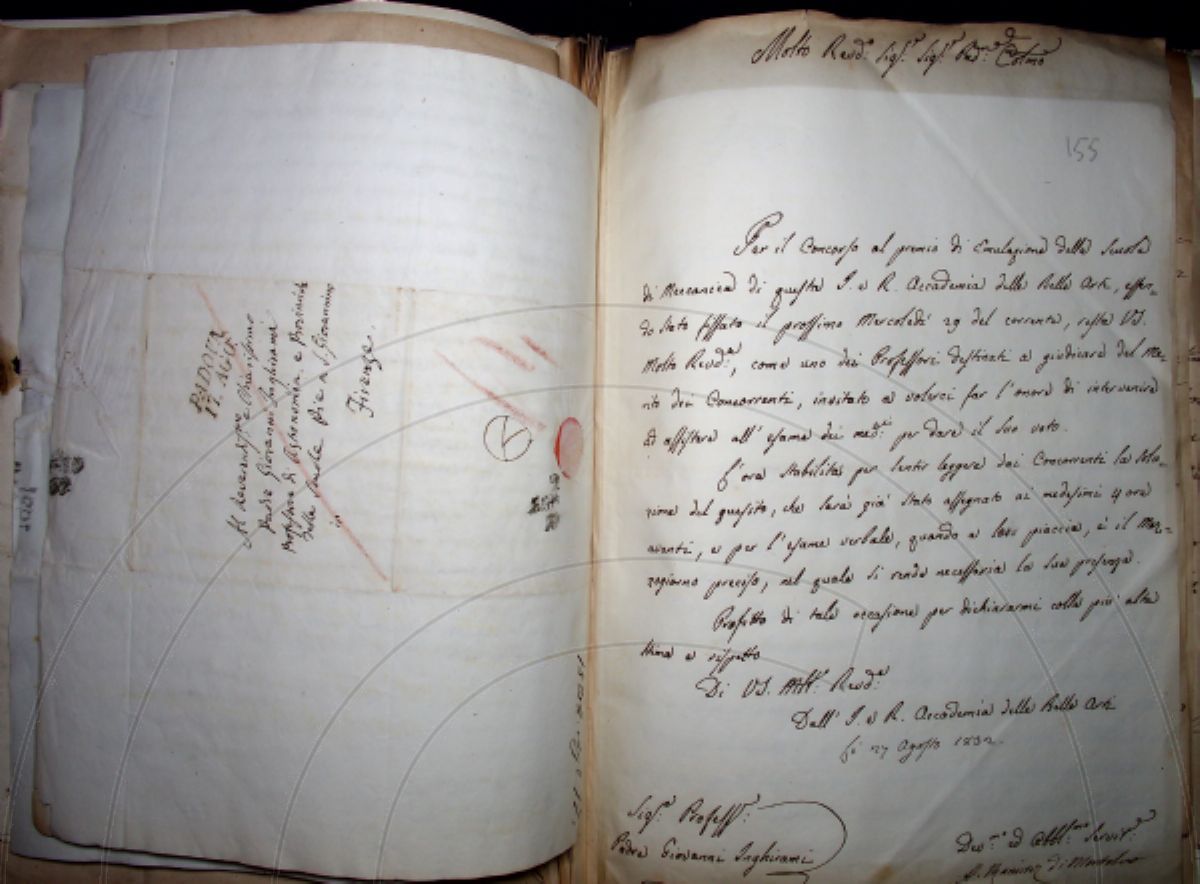 Al Reverendissimo
Padre Giovanni Inghirami
Professore di Astronomia e
delle Scuole Pie in S. Giovannino
in
Firenze.
Molto Revdo. Sigr. Sigr. Pad.
155
Per il Concorso al premio di Emulazione della Scuola
di Meccanica di questa I. e R. Accademia delle Belle Arti, essen-
do stato fissato il prossimo Mercoledì 29 del corrente, resta VS.
Molto Revda., come uno dei Professori destinati a giudicare del Me-
rito dei Concorrenti, invitato a volerci far l'onore di intervenire
ed assistere all'esame dei med.mi per dare il suo voto.
L'ora stabilita per sentir leggere dai Concorrenti la solu-
zione del quesito, che sarà già stato assegnato ai medesimi 4 ore
avanti, e per l'esame verbale, quando a loro piaccia, è il Mez-
zogiorno preciso, nel quale si rende necessaria la sua presenza.
Profitto di tale occasione per dichiararmi colla più alta
stima e rispetto
Di VS. Mto. Revda.
Dall' I. e R. Accademia delle Belle Arti
li 27 Agosto 1832.
Sigr. Profess.
Padre Giovanni Inghirami
Dev.mo ed Obbl.mo Servit.